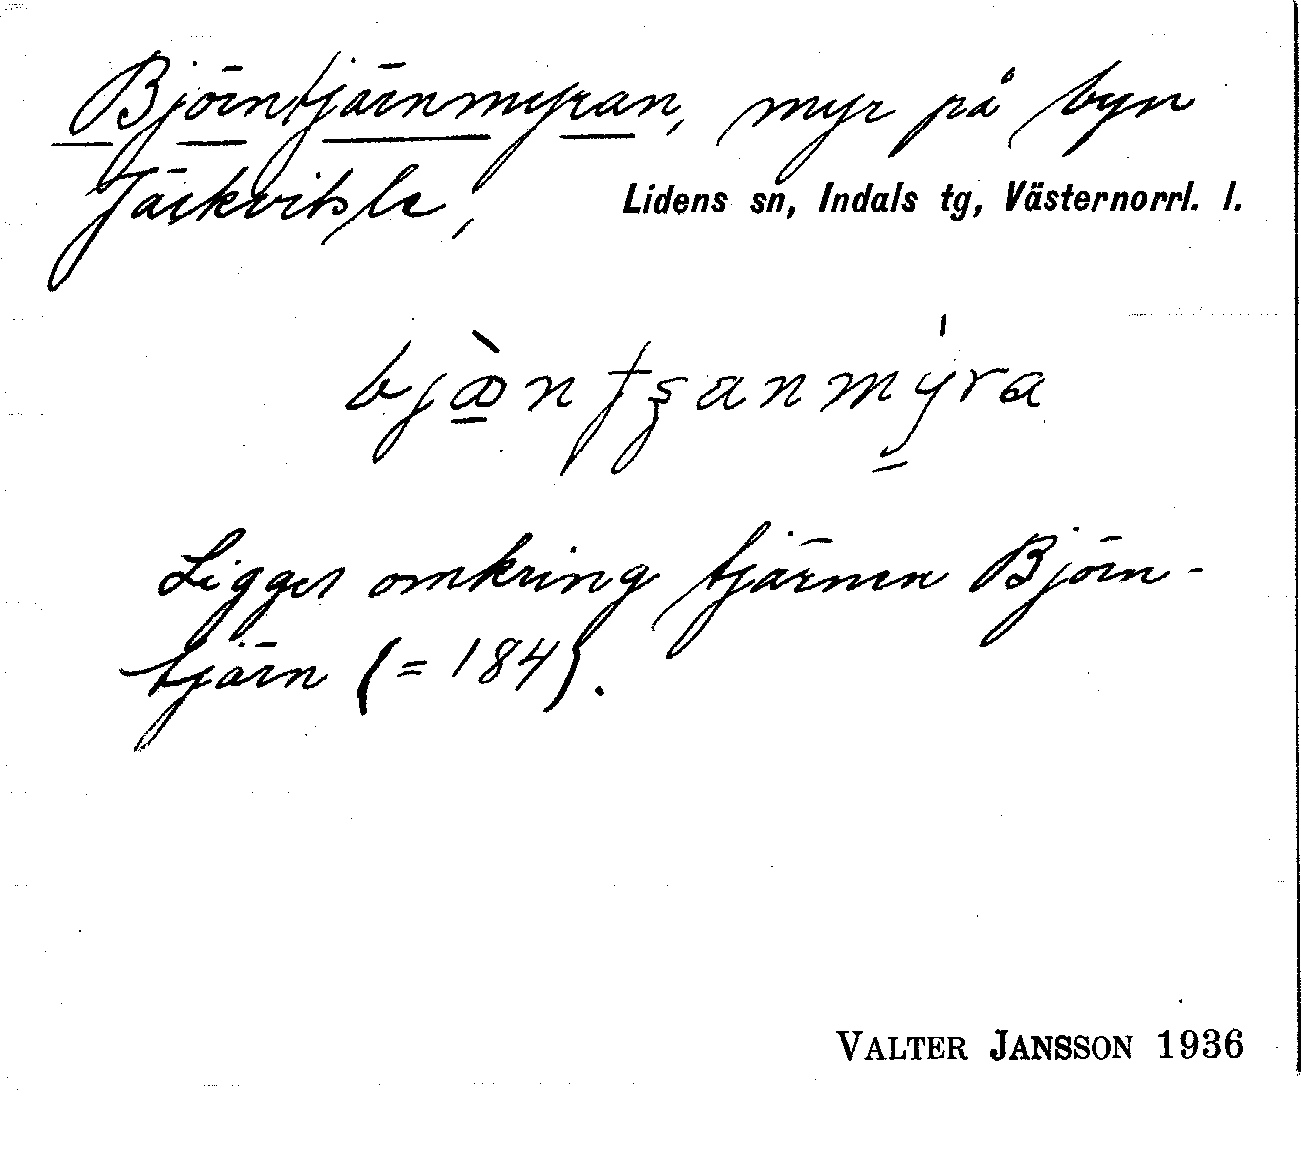 Björntjärnmyran, myr på byn
Jäckvitsle, Lidens sn, Indals tg, Västernorrl. l.
Ligger omkring tjärnen Björn-
tjärn (= 184).
VALTER JANSSON 1936